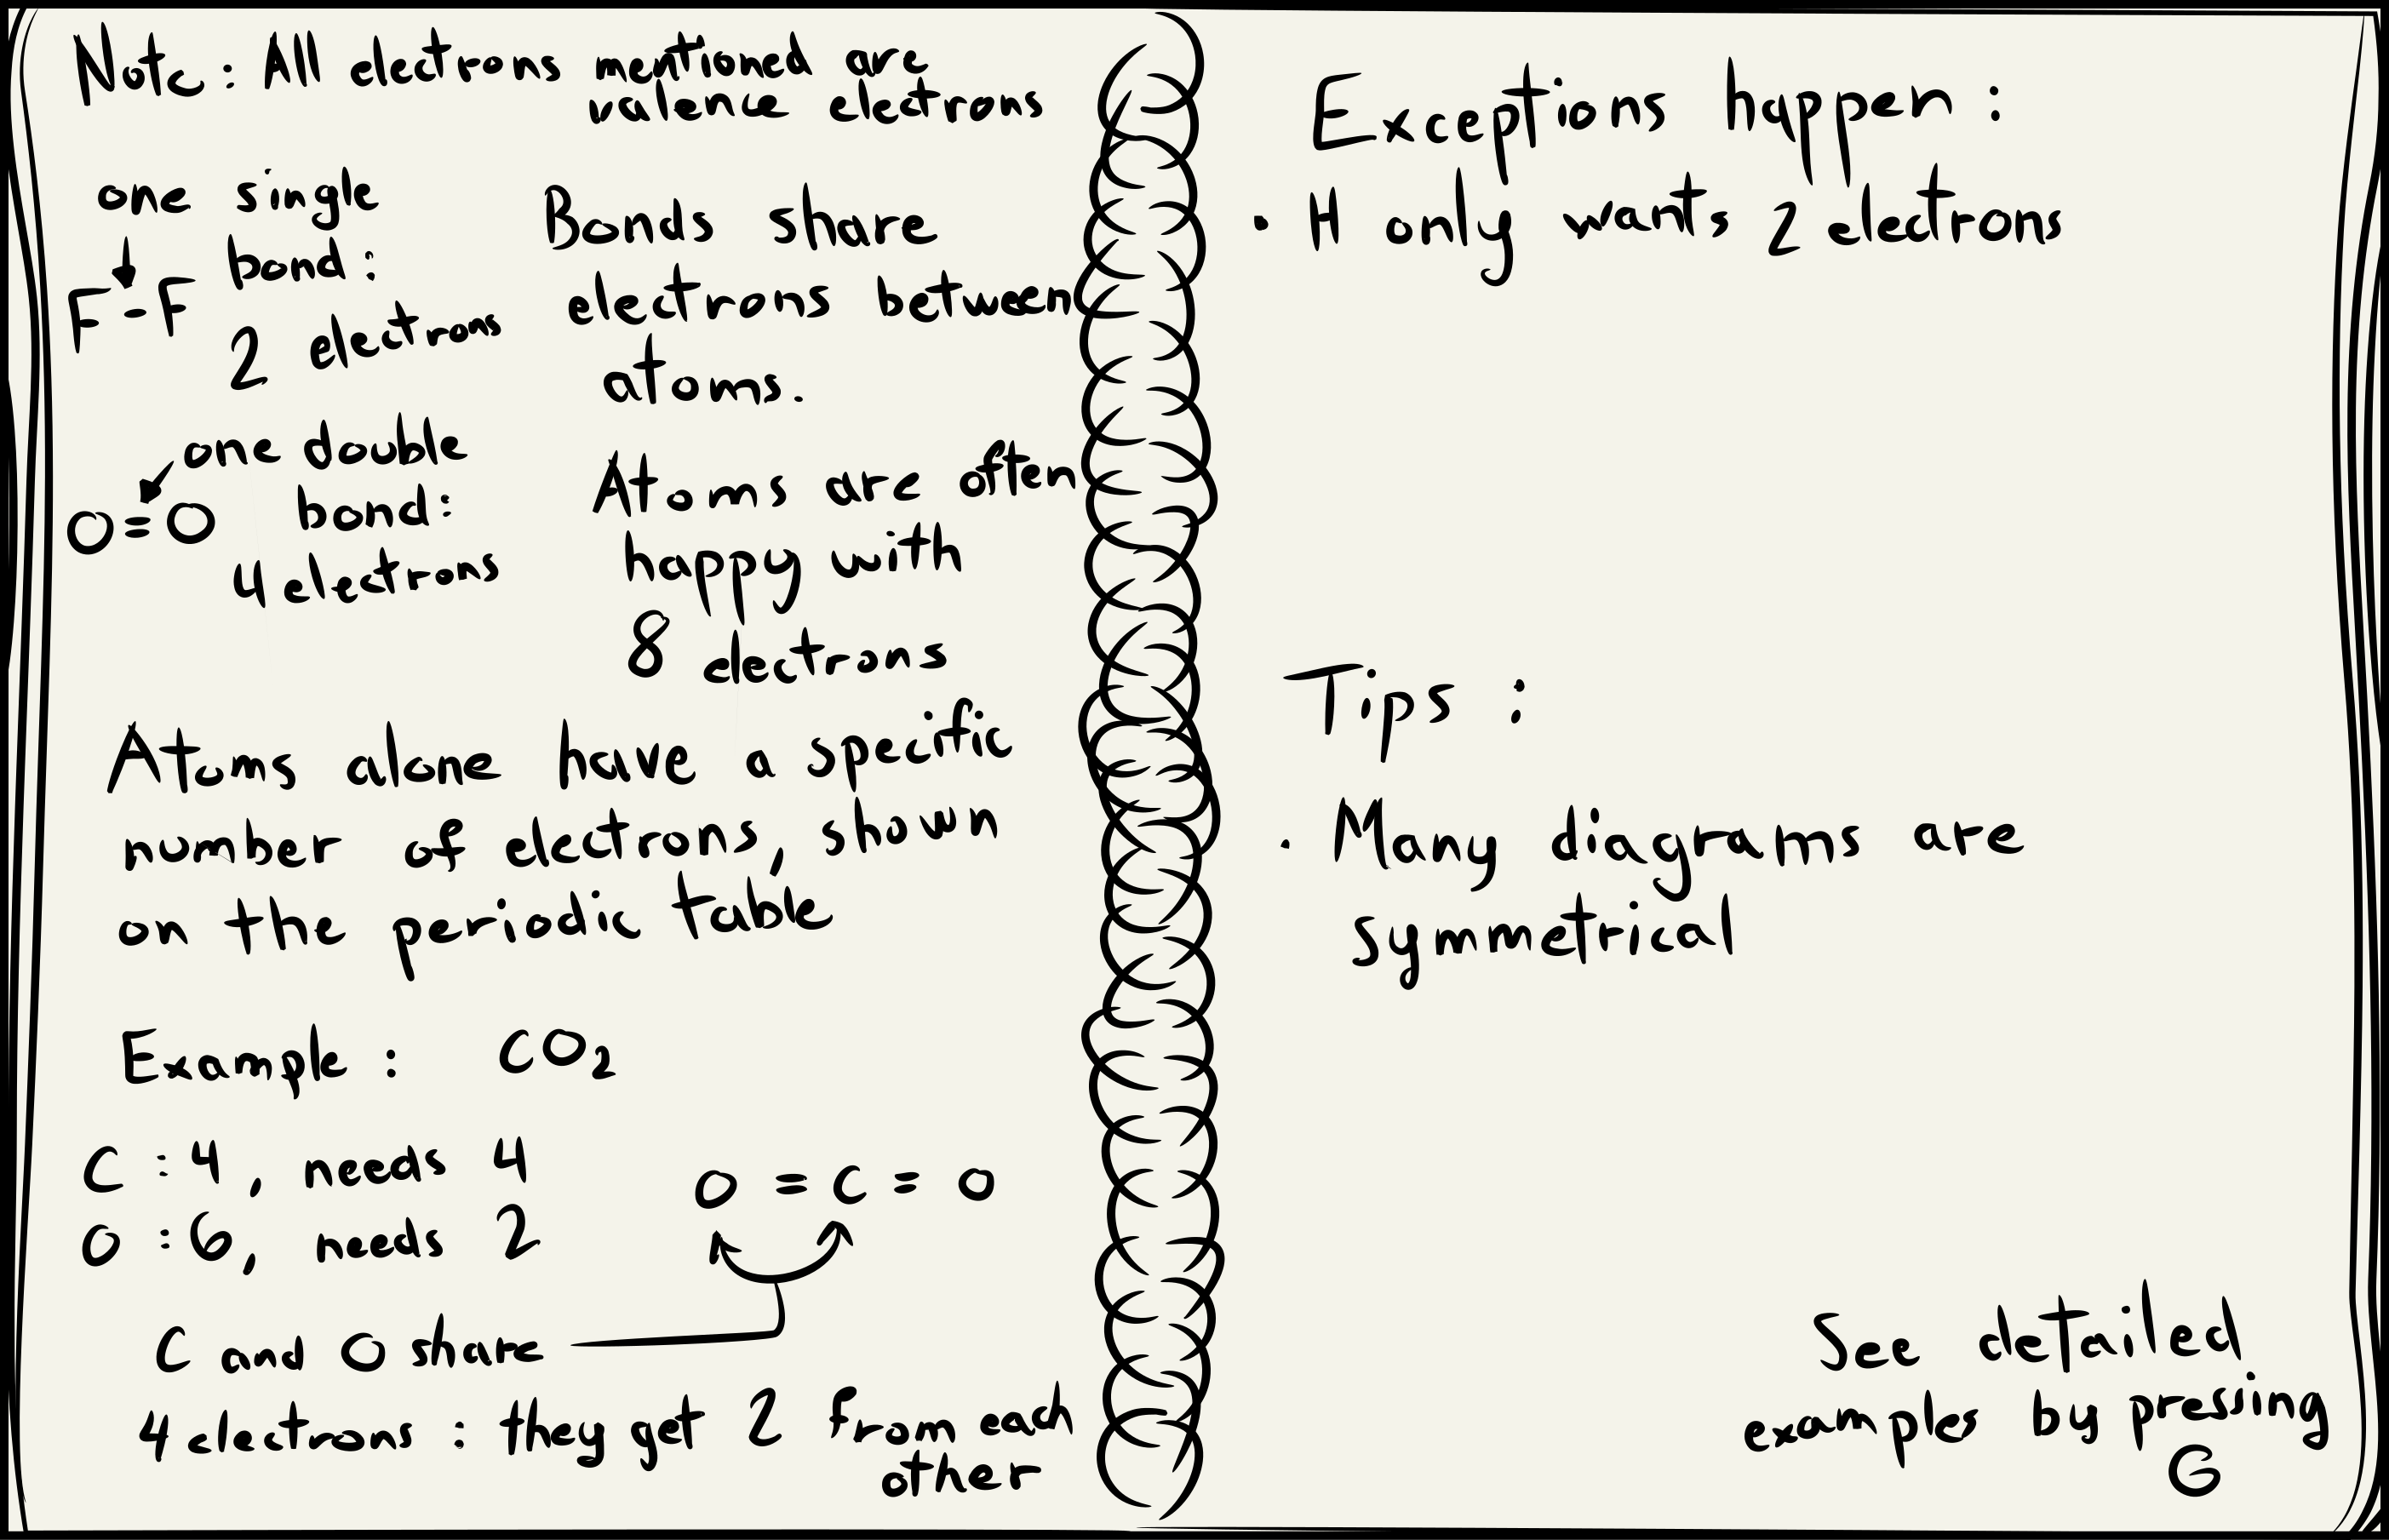 Note : All electrons mentioned are
valence electrons
one single
bond :
F - F
2 electrons
Bonds share
electrons between
atoms.
one double
bond :
O = O
4 electrons
Atoms are often
happy with
8 electrons
Atoms alone have a specific
number of electrons, shown
on the periodic table
Example : CO₂
C : 4, needs 4
O : 6, needs 2
O = C = O
C and O share
4 electrons : they get 2 from each
other
Exceptions happen :
· H only wants 2 electrons
Tips :
· Many diagrams are
symmetrical
See detailed
examples by pressing
G